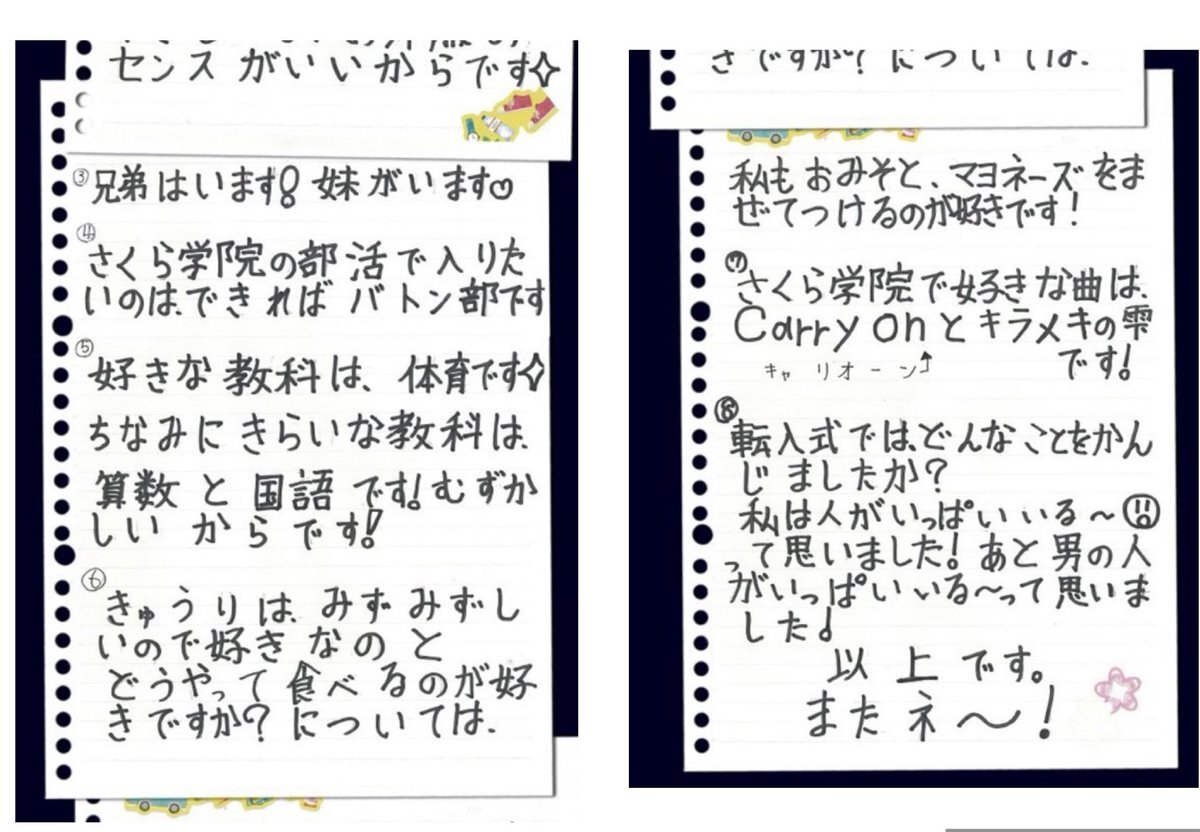 センス がいいからです✧
③兄弟はいます!妹がいます
④さくら学院の部活で入りた
いのは、できれば バトン部です
⑤好きな教科は、体育です✧
ちなみにきらいな教科は、
算数と国語です!むずか
しいからです!
⑥きゅうりは、みずみずし
いので好きなのと
どうやって食べるのが好
きですか?については、
きですか?については、
私もおみそと、マヨネーズをま
ぜてつけるのが好きです!
⑦さくら学院で好きな曲は、
Carry onとキラメキの雫
キャリオーン↑ です!
⑧転入式では、どんなことをかん
じましたか?
私は人がいっぱいいる~
って思いました!あと男の人
がいっぱいいる~って思いま
した♩
以上です。
またネ~!